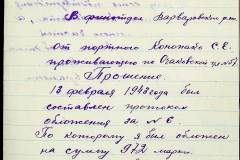 В финотдел Варваровской р-на
от портного Кононако С.Е.
проживающего по Очаковской
Прошение.
13 февраля 1943 года был
составлен протокол
обложения за № 6.
По которому я был обложен
на сумму 972 марки.